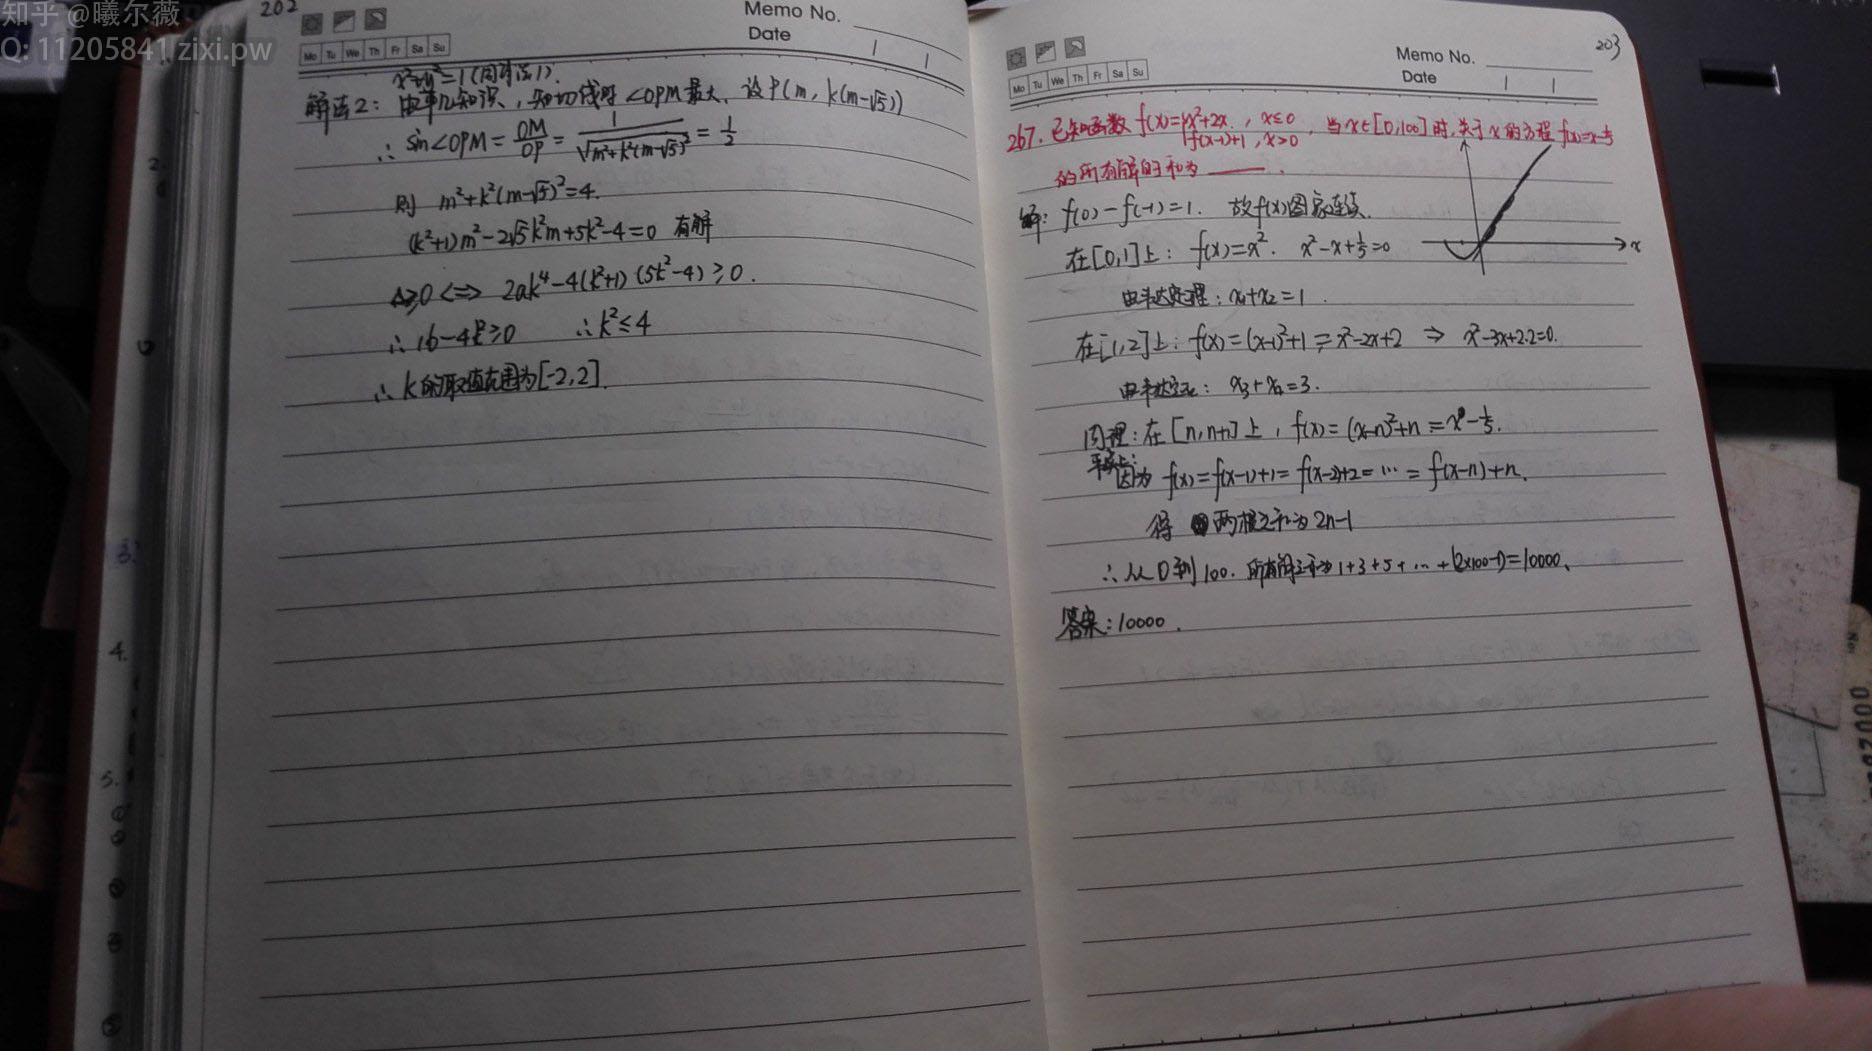 知乎 @曦尔薇
Q: 11205841 zixi.pw
202
Memo No.
Date
Mo Tu We Th Fr Sa Su
x²+y²=1(同解法1).
解法2: 由平几知识, 知切线时 ∠OPM 最大, 设P(m, k(m-√5))
∴ sin∠OPM = OM/OP = 1/√(m²+k²(m-√5)²) = 1/2
则 m²+k²(m-√5)²=4.
(k²+1)m²-2√5k²m+5k²-4=0 有解
△≥0 <=> 20k⁴-4(k²+1)(5k²-4)≥0.
∴ 16-4k²≥0 ∴k²≤4
∴ k的取值范围为[-2,2].
203
Memo No.
Date
Mo Tu We Th Fr Sa Su
267. 已知函数 f(x)={x²+2x, x≤0
f(x-1)+1, x>0, 当x∈[0,100]时, 关于x的方程 f(x)=x-1/5
的所有解的和为 ____.
解: f(0)-f(-1)=1. 故f(x)图象连续.
在[0,1]上: f(x)=x². x²-x+1/5=0
x
由韦达定理: x₁+x₂=1.
在[1,2]上: f(x)=(x-1)²+1=x²-2x+2 ⇒ x²-3x+2.2=0.
由韦达定理: x₃+x₄=3.
同理: 在[n,n+1]上, f(x)=(x-n)²+n=x-1/5.
因为 f(x)=f(x-1)+1=f(x-2)+2=…=f(x-n)+n.
得 两根之和为2n-1
∴从0到100. 所有解之和为1+3+5+…+(2×100-1)=10000.
答案: 10000.